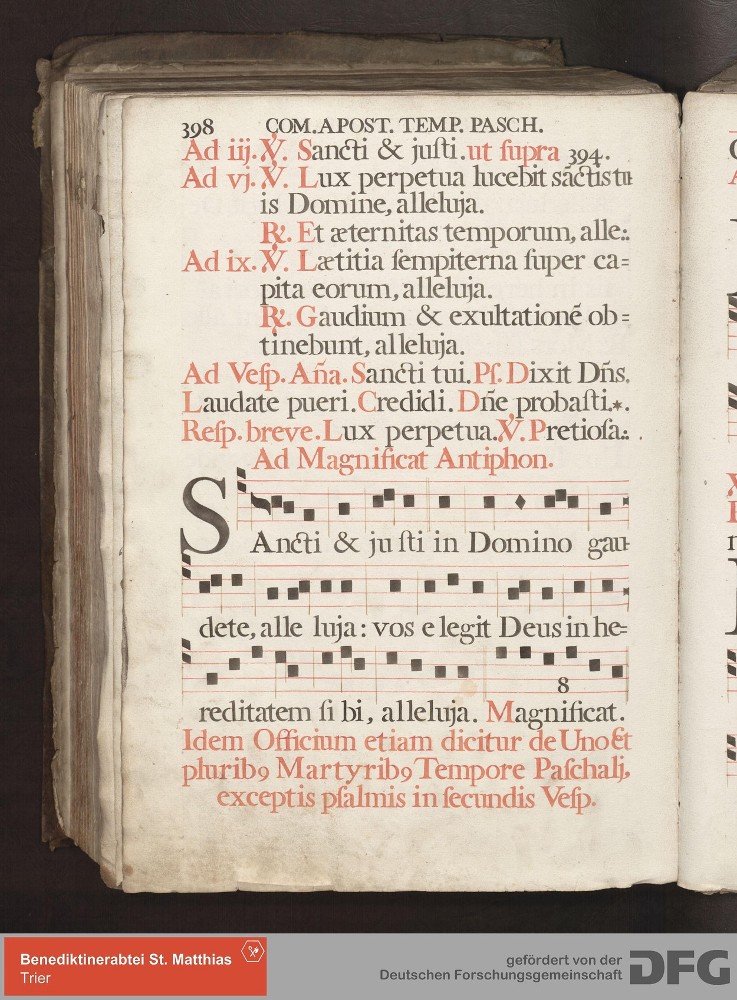 398 COM. APOST. TEMP. PASCH.
Ad iij. ℣. Sancti & juſti. ut ſupra 394.
Ad vj. ℣. Lux perpetua lucebit sãctis tu-
is Domine, alleluja.
℟. Et æternitas temporum, alle:.
Ad ix. ℣. Lætitia ſempiterna ſuper ca=
pita eorum, alleluja.
℟. Gaudium & exultationẽ ob=
tinebunt, alleluja.
Ad Veſp. Aña. Sancti tui. Pſ. Dixit Dñs.
Laudate pueri. Credidi. Dñe probaſti.*.
Reſp. breve. Lux perpetua. ℣. Pretioſa:.
Ad Magnificat Antiphon.
SAncti & ju ſti in Domino gau-
dete, alle luja: vos e legit Deus in he=
8
reditatem ſi bi, alleluja. Magnificat.
Idem Officium etiam dicitur de Uno et
pluribꝰ Martyribꝰ Tempore Paſchalj,
exceptis pſalmis in ſecundis Veſp.
Benediktinerabtei St. Matthias
Trier
gefördert von der
Deutschen Forschungsgemeinschaft DFG